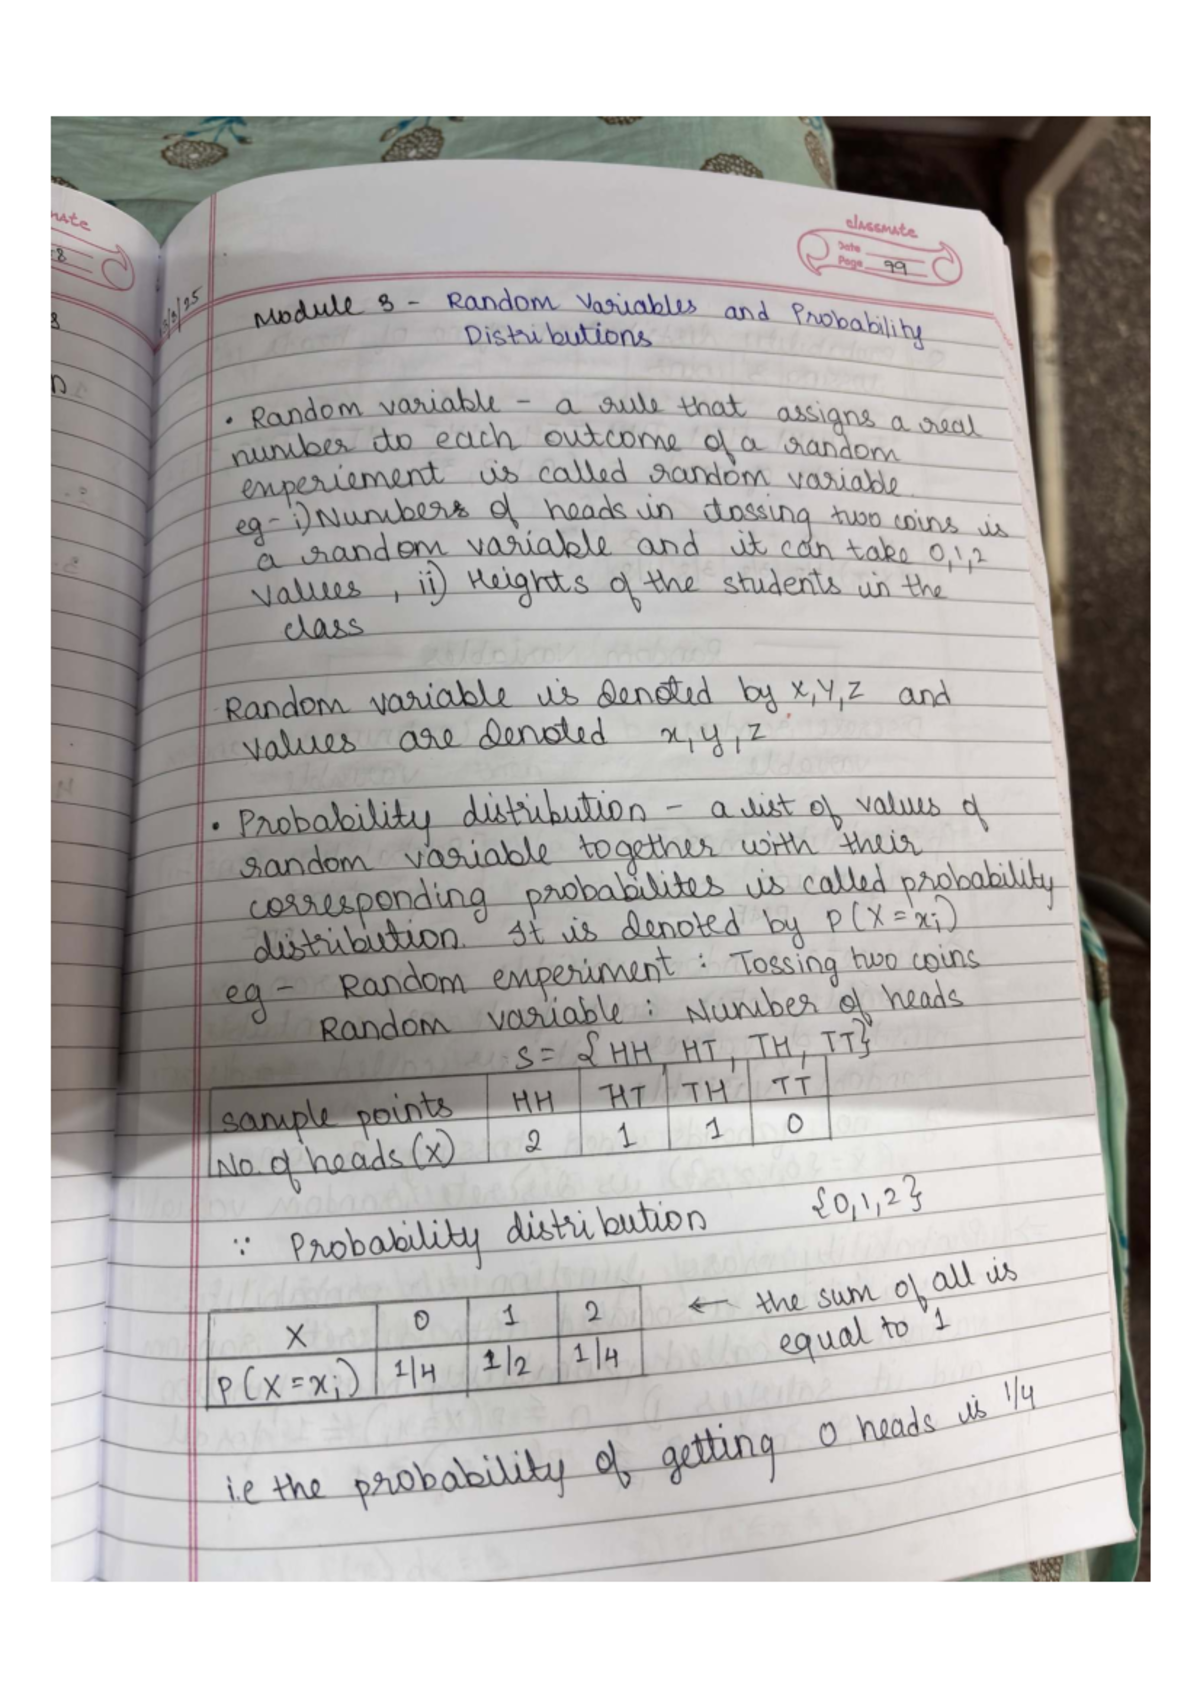 classmate
Date
Page 99
Module 3 - Random Variables and Probability
Distributions
• Random variable - a rule that assigns a real
number to each outcome of a random
experiement is called random variable.
eg - i) Numbers of heads in tossing two coins is
a random variable and it can take 0,1,2
values , ii) Heights of the students in the
class
Random variable is denoted by X,Y,Z and
values are denoted x,y,z
• Probability distribution - a list of values of
random variable together with their
corresponding probabilites is called probability
distribution. It is denoted by P(X=xi)
eg - Random experiment : Tossing two coins
Random variable : Number of heads
S = {HH HT, TH, TT}
sample points HH HT TH TT
No. of heads (X) 2 1 1 0
∵ Probability distribution {0,1,2}
X 0 1 2 ← the sum of all is
equal to 1
P(X=xi) 1/4 1/2 1/4
i.e the probability of getting 0 heads is 1/4